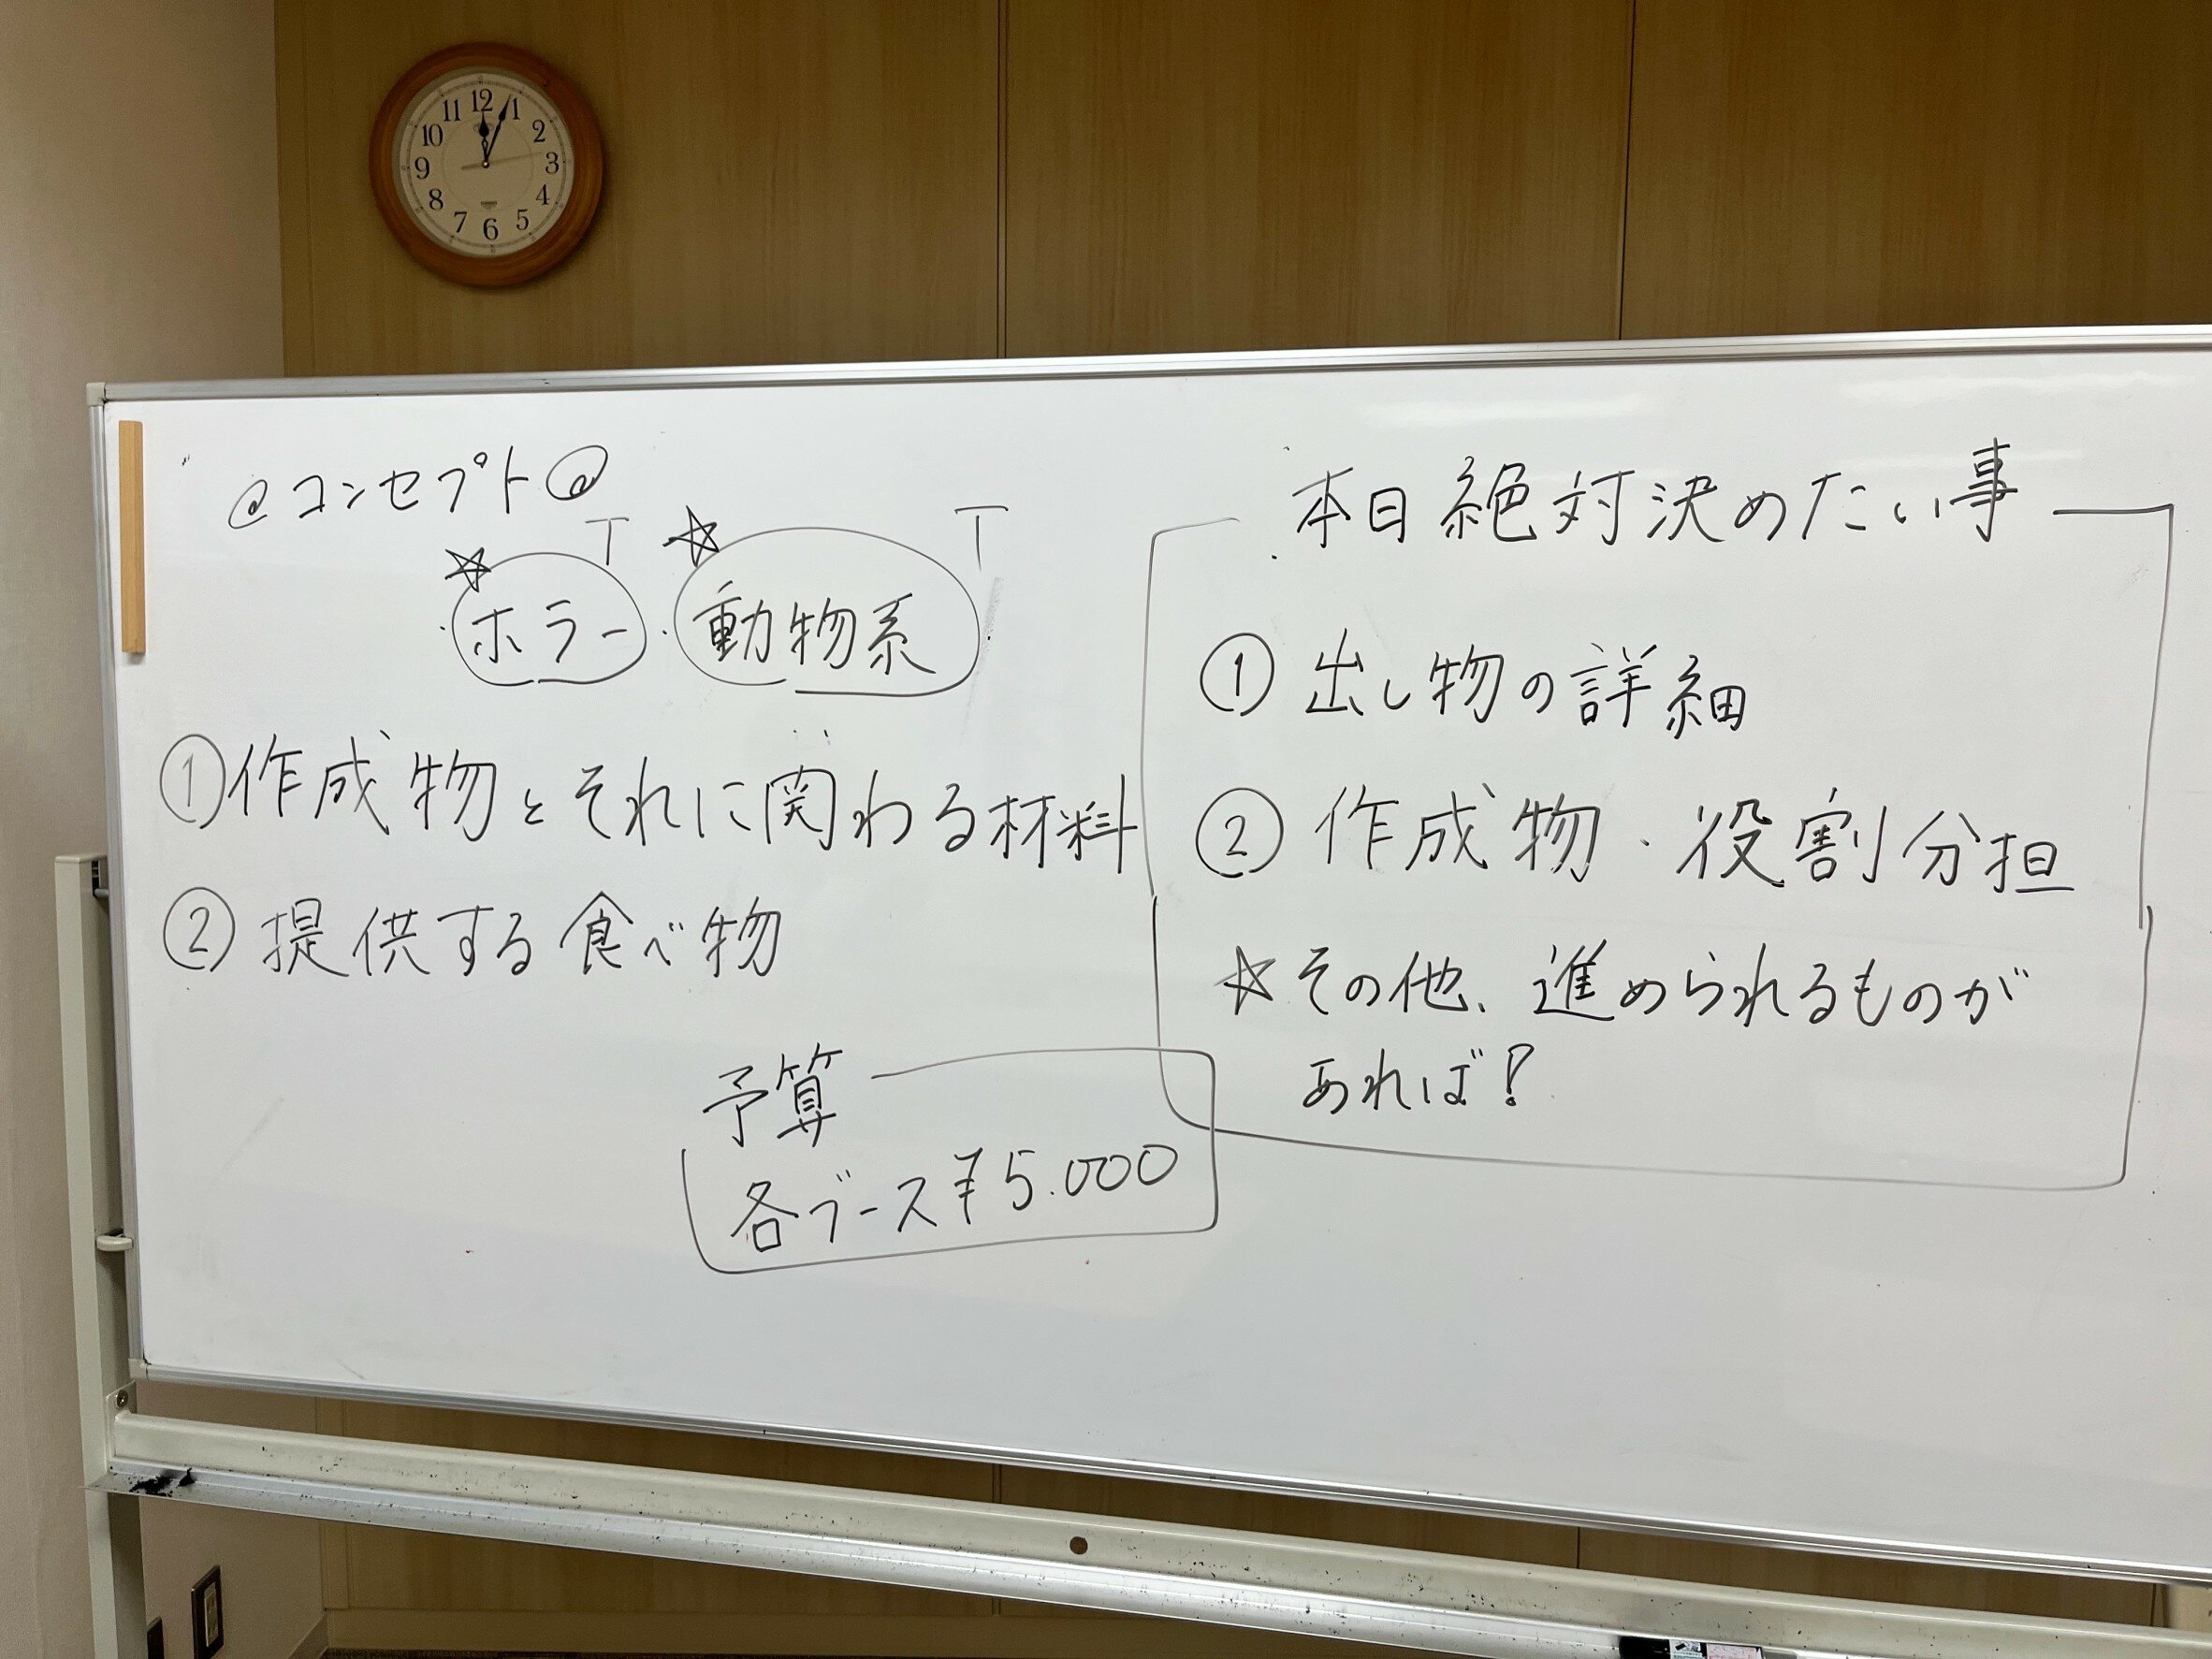 @コンセプト@
☆ホラー T ・ ☆動物系 T
①作成物とそれに関わる材料
②提供する食べ物
予算
各ブース¥5.000
本日絶対決めたい事
①出し物の詳細
②作成物・役割分担
☆その他、進められるものが
あれば!
11 12 1
10 2
9 3
8 4
7 6 5